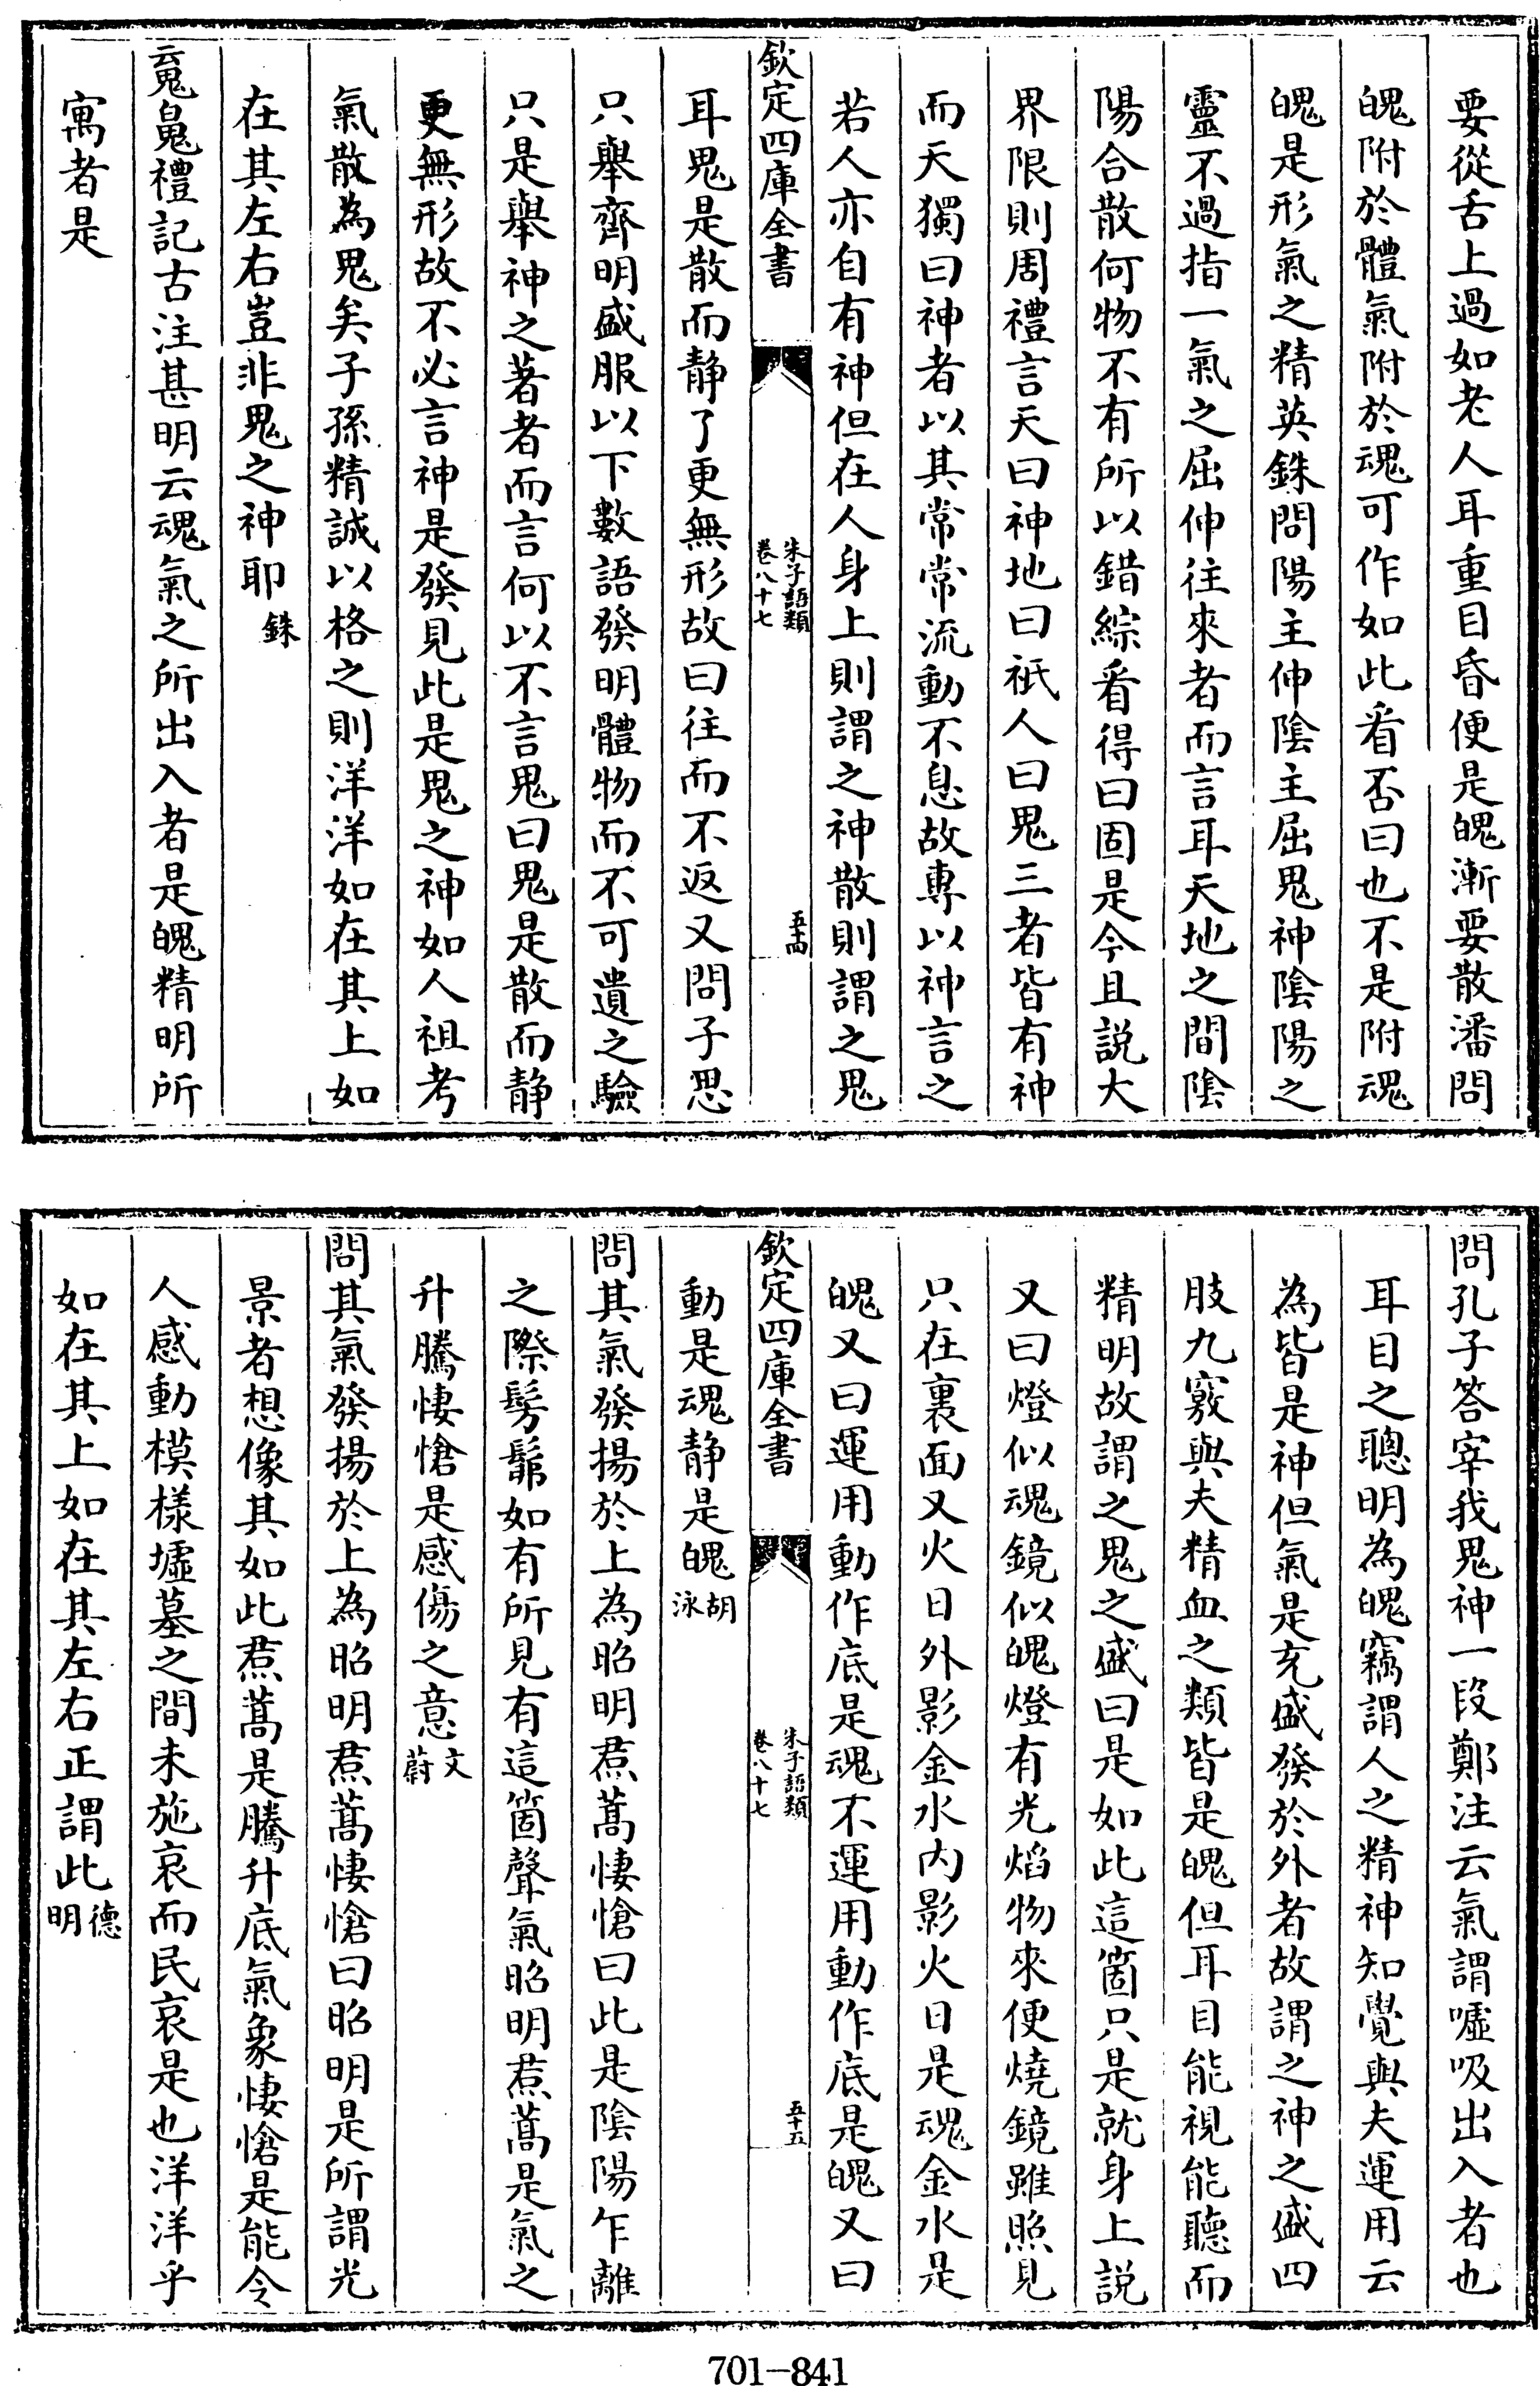 要從舌上過如老人耳重目昏便是魄漸要散潘問
魄附於體氣附於魂可作如此看否曰也不是附魂
魄是形氣之精英銖問陽主伸陰主屈鬼神陰陽之
靈不過指一氣之屈伸往來者而言耳天地之間陰
陽合散何物不有所以錯綜看得曰固是今且説大
界限則周禮言天曰神地曰祇人曰鬼三者皆有神
而天獨曰神者以其常常流動不息故專以神言之
若人亦自有神但在人身上則謂之神散則謂之鬼
欽定四庫全書
朱子語類
卷八十七
五十四
耳鬼是散而静了更無形故曰往而不返又問子思
只舉齊明盛服以下數語發明體物而不可遺之驗
只是舉神之著者而言何以不言鬼曰鬼是散而静
更無形故不必言神是發見此是鬼之神如人祖考
氣散為鬼矣子孫精誠以格之則洋洋如在其上如
在其左右豈非鬼之神耶銖
魂魄禮記古注甚明云魂氣之所出入者是魄精明所
寓者是
問孔子答宰我鬼神一段鄭注云氣謂嘘吸出入者也
耳目之聰明為魄竊謂人之精神知覺與夫運用云
為皆是神但氣是充盛發於外者故謂之神之盛四
肢九竅與夫精血之類皆是魄但耳目能視能聽而
精明故謂之鬼之盛曰是如此這箇只是就身上説
又曰燈似魂鏡似魄燈有光焰物來便燒鏡雖照見
只在裏面又火日外影金水内影火日是魂金水是
魄又曰運用動作底是魂不運用動作底是魄又曰
欽定四庫全書
朱子語類
卷八十七
五十五
動是魂静是魄胡泳
問其氣發揚於上為昭明焄蒿悽愴曰此是陰陽乍離
之際髣髴如有所見有這箇聲氣昭明焄蒿是氣之
升騰悽愴是感傷之意文蔚
問其氣發揚於上為昭明焄蒿悽愴曰昭明是所謂光
景者想像其如此焄蒿是騰升底氣象悽愴是能令
人感動模樣墟墓之間未施哀而民哀是也洋洋乎
如在其上如在其左右正謂此德明
701-841